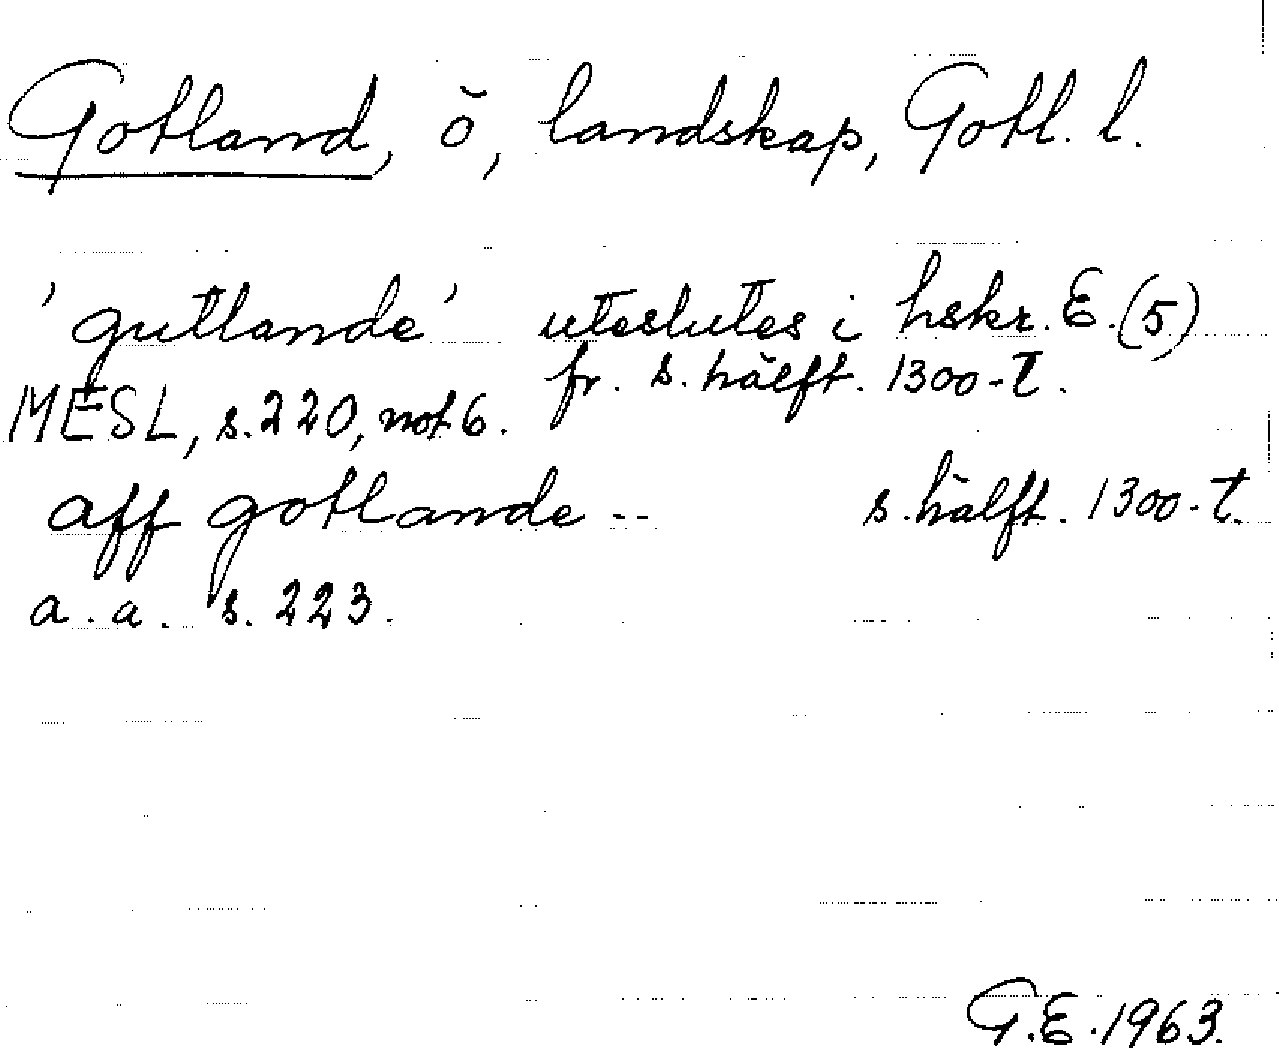 Gotland, ö, landskap, Gotl. l.
'gutlande' uteslutes i hskr. E. (5)
fr. s. hälft. 1300-t.
MESL, s. 220, not 6.
aff gotlande -- s. hälft. 1300-t.
a. a. s. 223.
G.E. 1963.